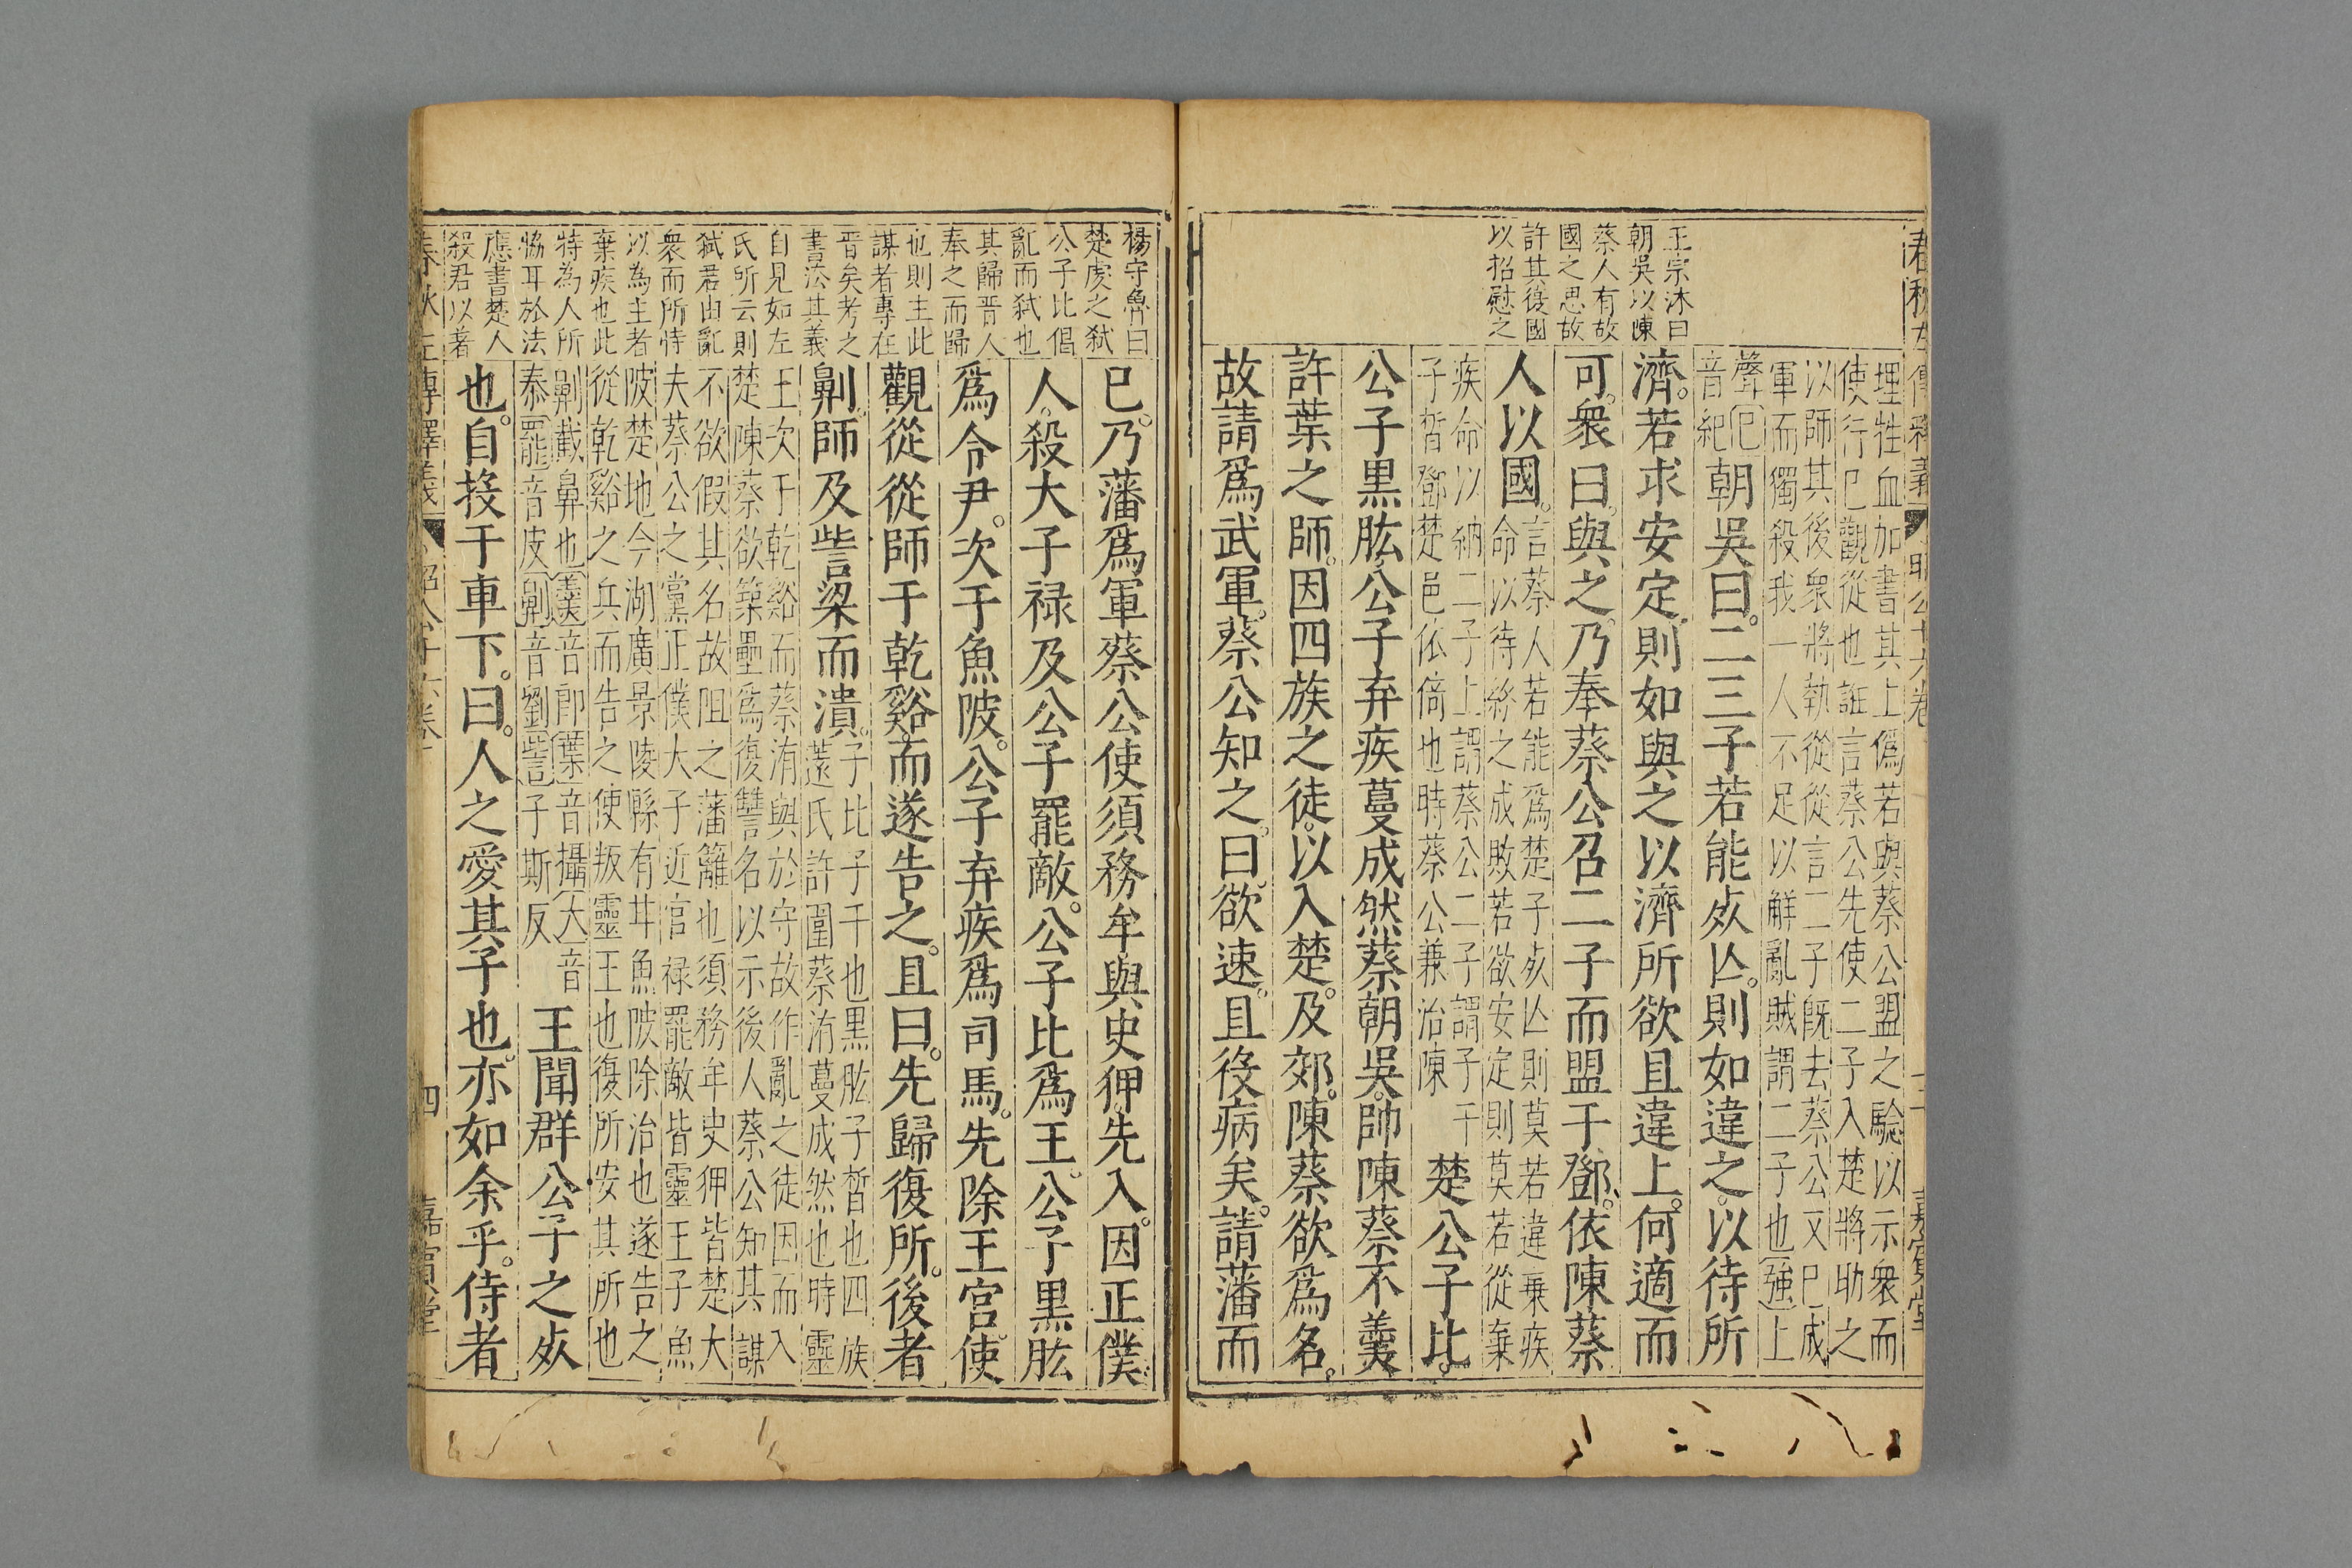 王宗沐曰
朝吳以陳
蔡人有故
國之思故
許其復國
以招慰之
埋牲血加書其上僞若與蔡公盟之驗以示衆而
使行巳觀從也誑言蔡公先使二子入楚將助之
以師其後衆將執從從言二子旣去蔡公又巳成
軍而獨殺我一人不足以觧亂賊謂二子也強上
聲㔾
音紀
朝吳曰。二三子若能㱔亾。則如違之。以待所
濟。若求安定。則如與之以濟所欲且違上。何適而
可。衆曰。與之。乃奉蔡公召二子而盟于鄧。依陳蔡
人以國。
言蔡人若能爲楚子㱔亾則莫若違棄疾
命以待終之成敗若欲安定則莫若從棄
疾命以納二子上謂蔡公二子謂子干
子晳鄧楚邑依倚也時蔡公兼治陳
楚公子比。
公子黑肱。公子弃疾蔓成然蔡朝吳。帥陳蔡不羹
許葉之師。因四族之徒。以入楚。及郊。陳蔡欲爲名。
故請爲武軍。蔡公知之。曰。欲速。且役病矣。請藩而
楊守魯曰
楚虔之弑
公子比倡
亂而弑也
其歸晋人
奉之而歸
也則主此
謀者專在
晋矣考之
書法其義
自見如左
氏所云則
弑君由亂
衆而所恃
以為主者
棄疾也此
特為人所
恊耳於法
應書楚人
殺君以著
巳。乃藩爲軍蔡公使須務牟與史猈先入。因正僕
人。殺大子祿及公子罷敵。公子比爲王。公子黑肱
爲令尹。次于魚陂。公子弃疾爲司馬。先除王宮。使
觀從從師于乾谿。而遂告之。且曰。先歸復所。後者
劓。師及訾梁而潰。
子比子干也黑肱子晳也四族
薳氏許圍蔡洧蔓成然也時靈
王次于乾谿而蔡洧與於守故作亂之徒因而入
楚陳蔡欲築壘爲復讐名以示後人蔡公知其謀
不欲假其名故阻之藩籬也須務牟史猈皆楚大
夫蔡公之黨正僕大子近官祿罷敵皆靈王子魚
陂楚地今湖廣景陵縣有甘魚陂除治也遂告之
從乾谿之兵而告之使叛靈王也復所安其所也
劓截鼻也羹音郎葉音攝大音
泰罷音皮劓音劉訾子斯反
王聞群公子之㱔
也。自投于車下。曰。人之愛其子也。亦如余乎。侍者
四
嘉賓堂